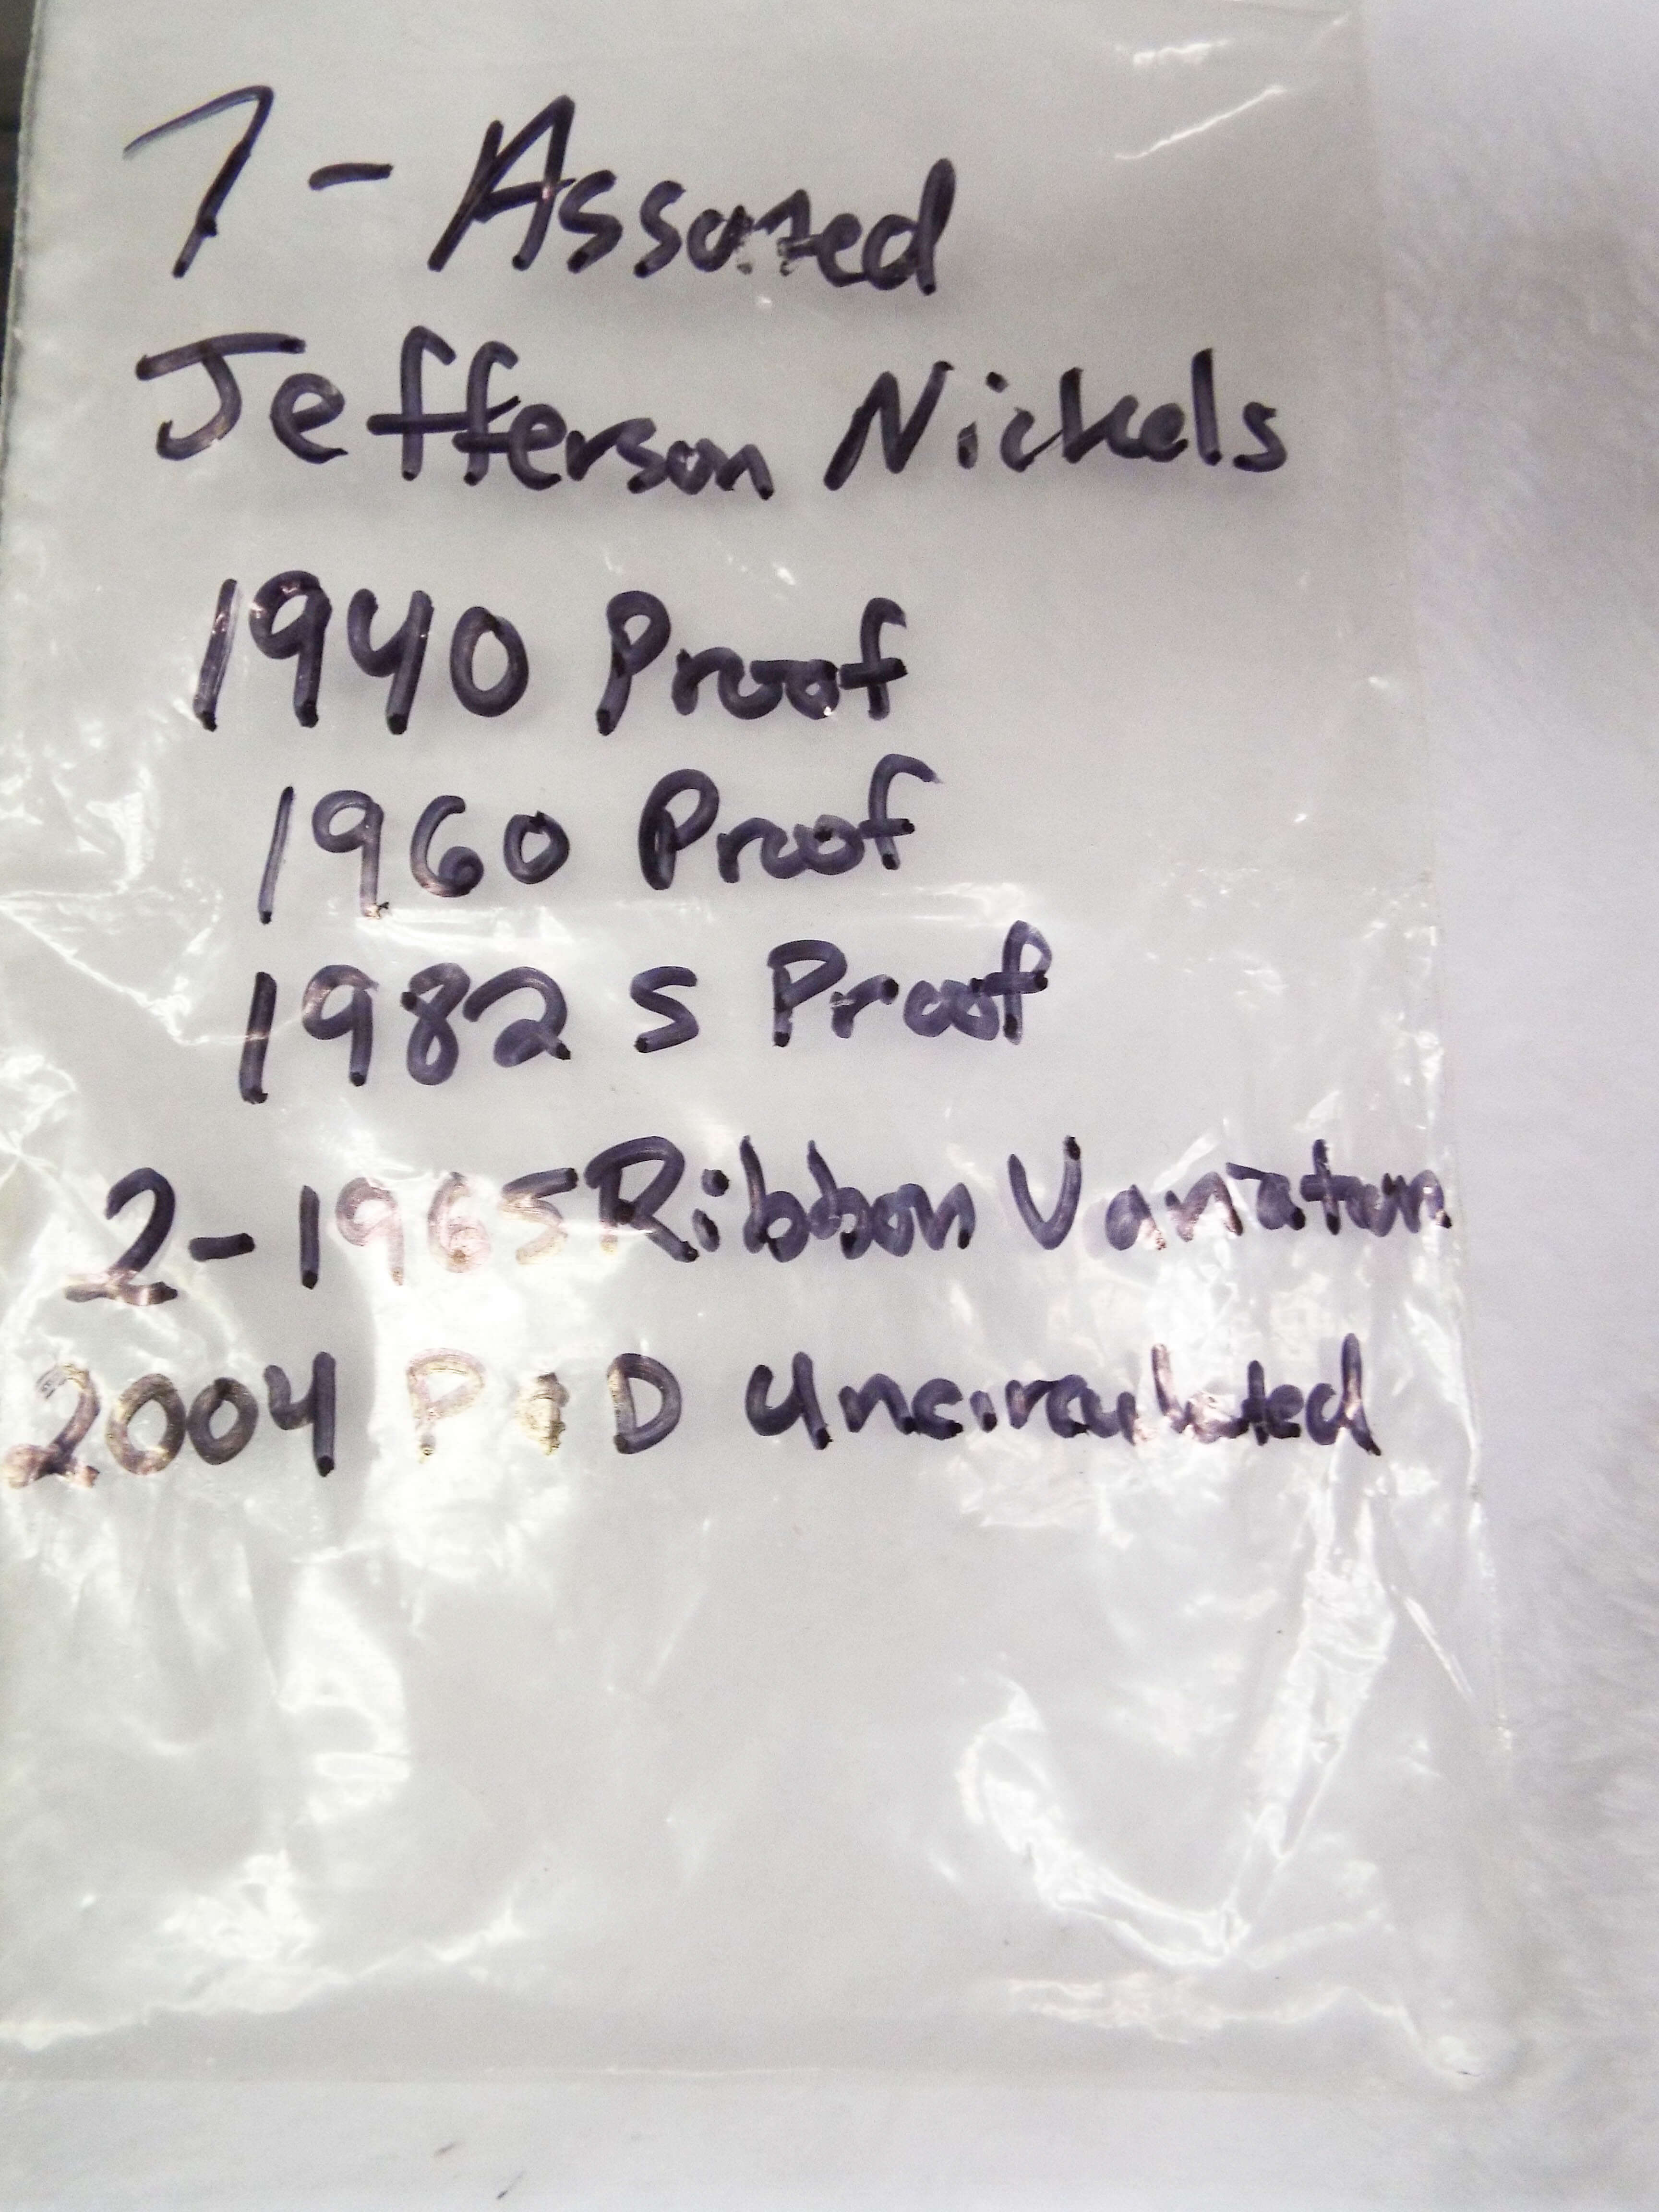 7 - Assorted
Jefferson Nickels
1940 Proof
1960 Proof
1982 S Proof
2-1965 Ribbon Variation
2004 P & D Uncirculated